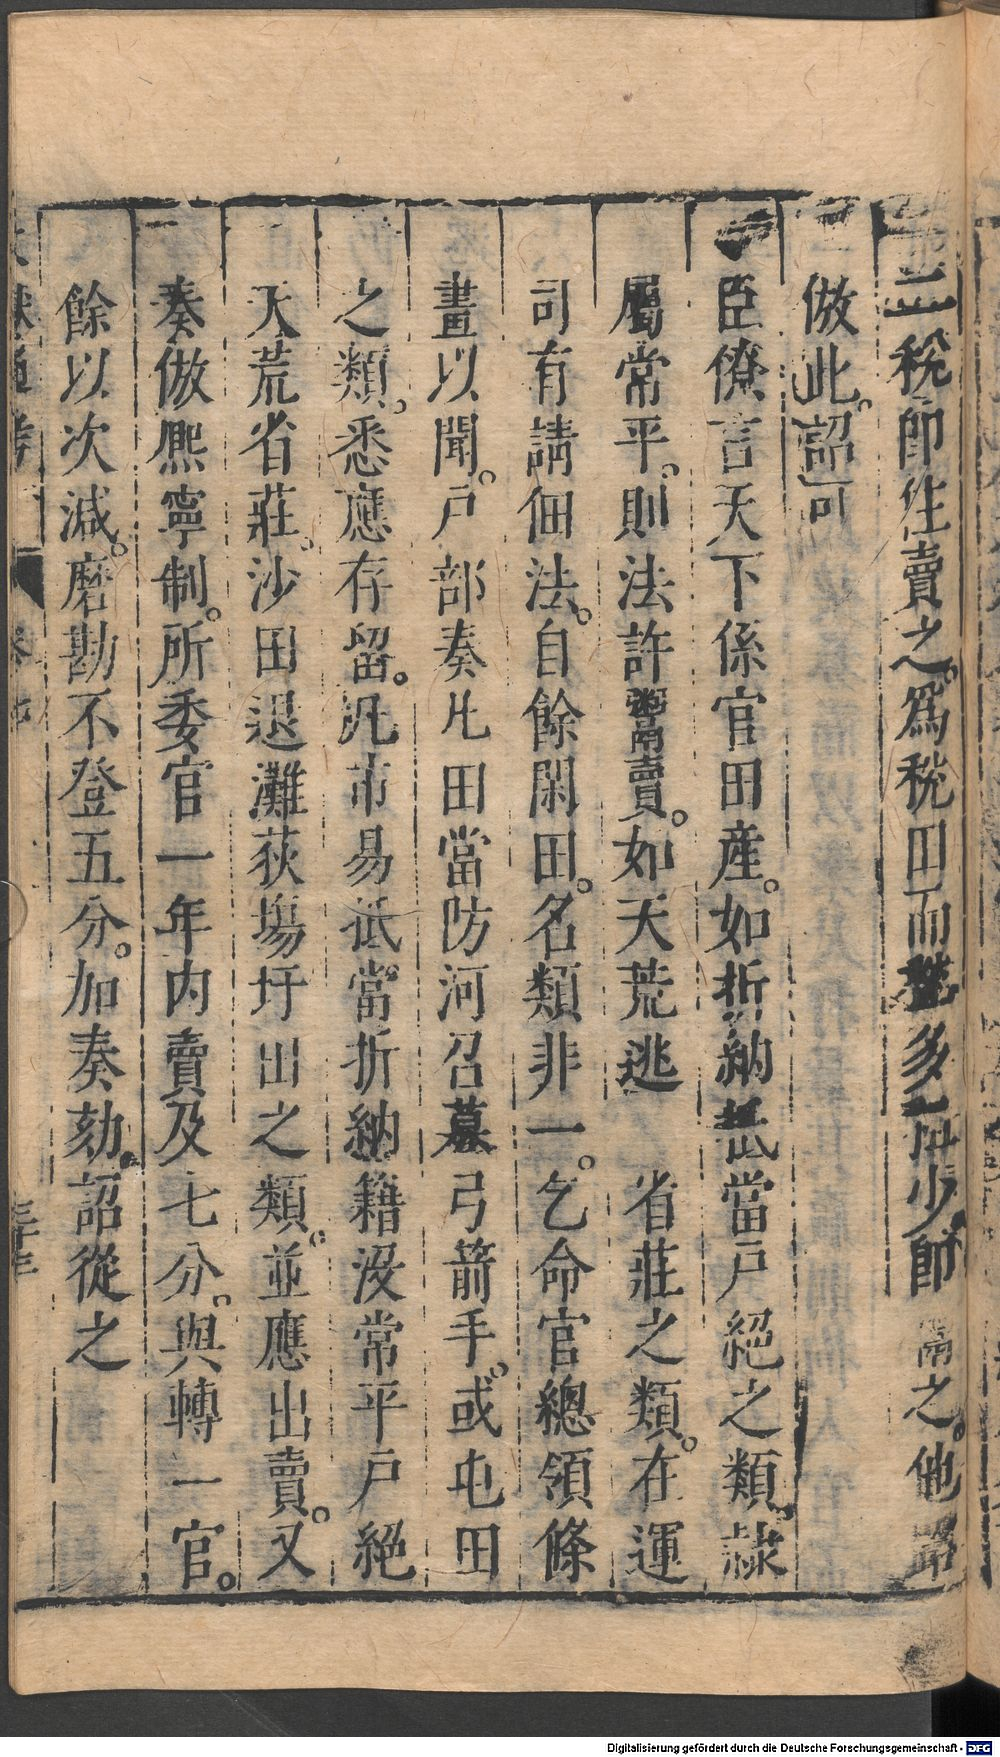 二稅即往賣之。爲稅田而多少即鬻之。他路
倣此。詔可
臣僚言天下係官田產。如折納抵當戶絕之類。隸
屬常平。則法許鬻賣。如天荒逃 省莊之類。在運
司有請佃法。自餘閑田。名類非一。乞命官總領條
畫以聞。戶部奏凡田當防河召募弓箭手。或屯田
之類。悉應存留。凡市易抵當折納籍沒常平戶絕
天荒省莊。沙田退灘荻場圩田之類。並應出賣。又
奏倣熈寧制。所委官一年內賣及七分。與轉一官。
餘以次減。磨勘不登五分。加奏劾。詔從之
通考
Digitalisierung gefördert durch die Deutsche Forschungsgemeinschaft - DFG